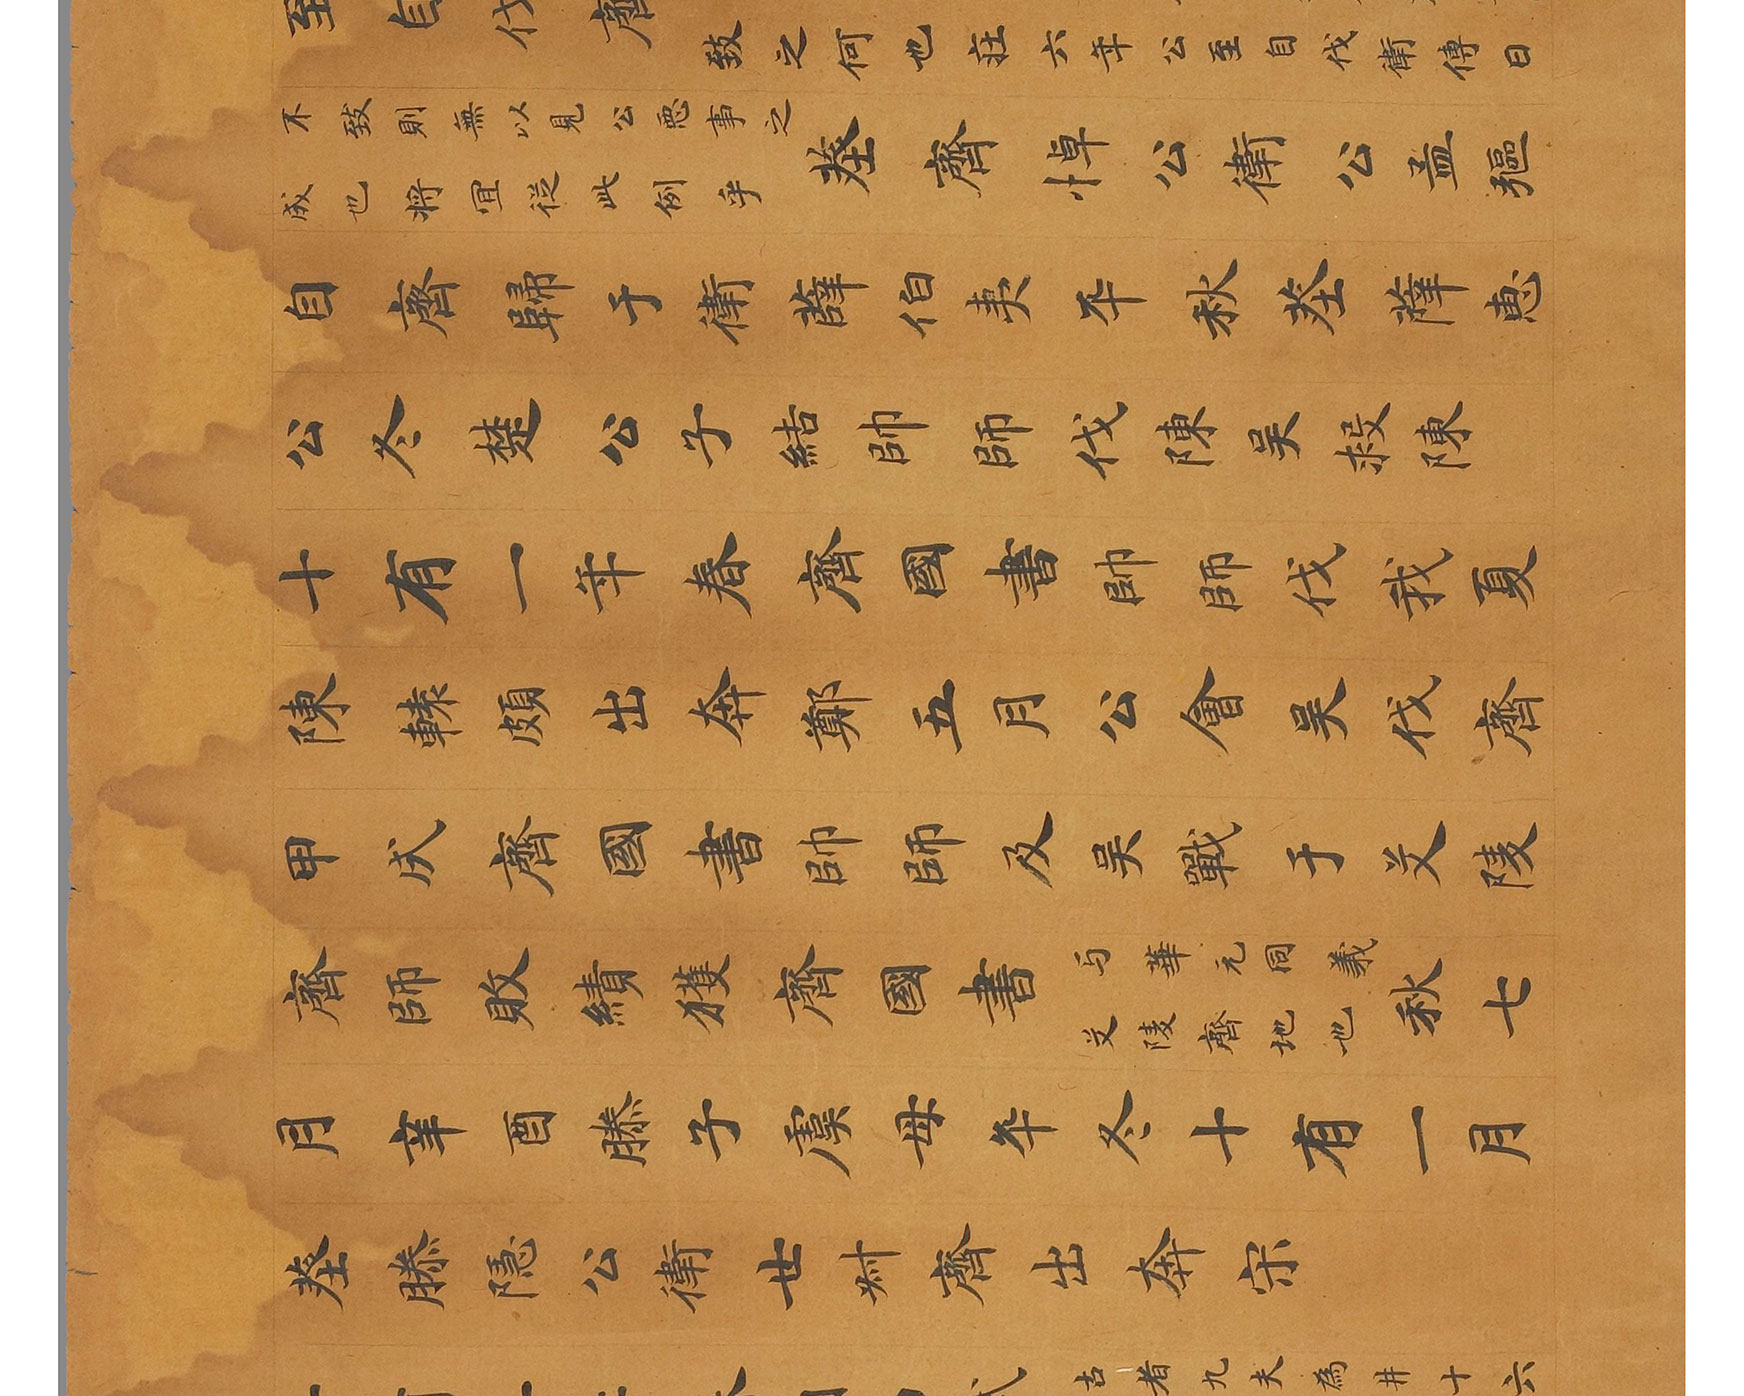 至自伐齊致之何也莊六年公至自伐衛傳曰
不致則無以見公惡事之成也將宜從此例乎葬齊悼公衛公孟彄
自齊歸于衛薛伯夷卒秋葬薛惠
公冬楚公子結帥師伐陳吳救陳
十有一年春齊國書帥師伐我夏
陳轅頗出奔鄭五月公會吳伐齊
甲戌齊國書帥師及吳戰于艾陵
齊師敗績獲齊國書与華元同義艾陵齊地也秋七
月辛酉滕子虞母卒冬十有一月
葬滕隱公衛世叔齊出奔宋
古者九夫為井十六